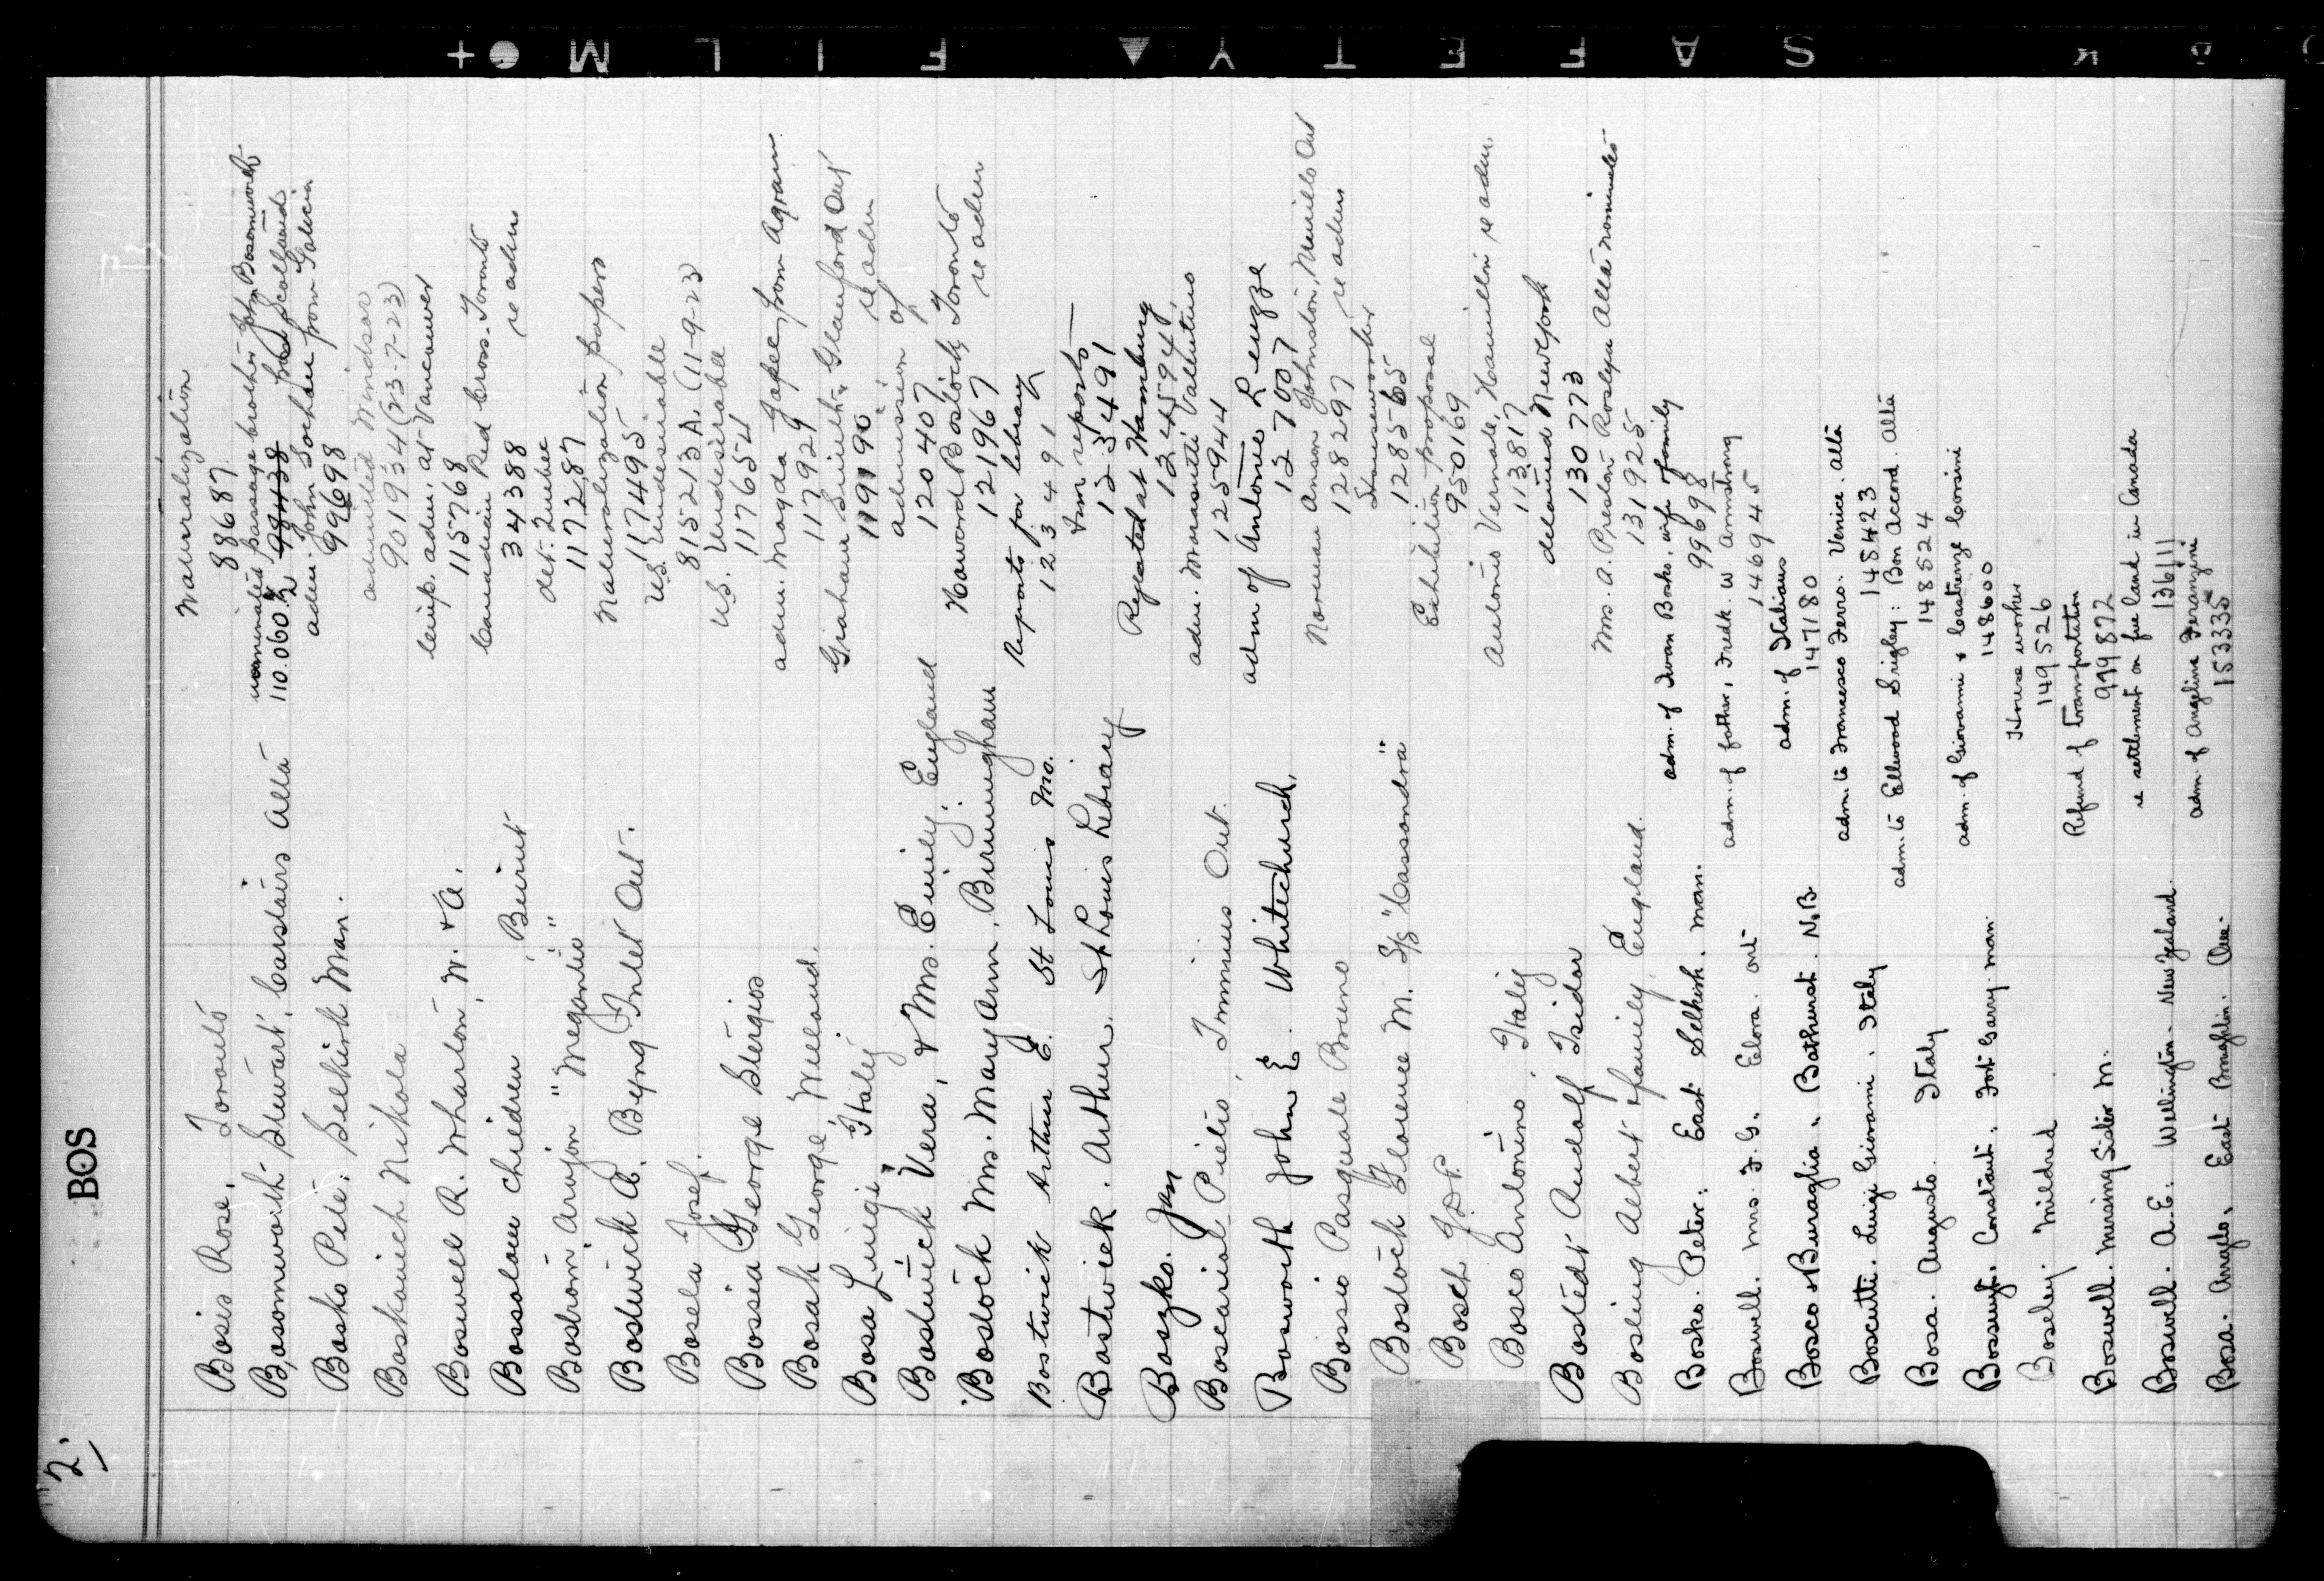 2.
BOS
Bosis Rose, Toronto Naturalization
88687
Bosomworth Stewart, Carstairs Alta nominated passage brother John Bosomworth from Scotland
110.060.2 98438
Bosko Pete. Selkirk Man. adm. John Sochan from Galicia
99698
Boskovich Nikola admitted Windsor
901934 (23-7-23)
Boswell R. Wharton, W. + A. temp. adm. at Vancouver
115768
Bossolow children, Beirut Canadian Red Cross. Toronto re adm
34388
Bostrom, Arvjon "Megantic" det. Quebec
117287
Bostwick A. Byng Inlet Ont. Naturalization papers
117495
Bosela Josef. U.S. Undesirable
815213 A. (11-9-23)
Bossia George Stergios U.S. Undesirable
117654
Bosak George, Welland. adm. Magda Japec from Agram
117929
Bosa Luigi, Italy Graham Smith, Glanford Ont re adm
119190
Bostwick Vera, & Mrs. Emily: England admission of
120407
Bostock Mrs. Mary Ann, Birmingham Howard Bostock, Toronto re adm
121967
Bostwick Arthur E. St Louis Mo. Reports for library
123491
Bostwick. Arthur. St Louis Library Imm reports
123491
Boszko. Jan Rejected at Hamburg
124594
Boscariol Pietro, Timmins Ont. adm. Morasutti Valentino
125944
Bosworth John E. Whitechurch. adm of Antonie Lenzze
127007
Bossio Pasquale Bruno Norman Anson Johnston, Murillo Ont re adm
128297
Bostock Florence M. S/S "Cassandra" Houseworker
128565
Bosch J.D.P. Exhibition proposal
950169
Bosco Antonino, Italy Antonio Vernale, Hamilton re adm.
113817
Bostedt Rudolf Isidor detained New York
130773
Bosling Albert & family England. Mrs. A. Preston Roslyn Alta nominates
131925
Bosko. Peter. East Selkirk. Man. adm. of Iwan Bosko, wife & family
99698
Boswell. Mrs. F. G. Elora. Ont adm. of father, Fredk. W Armstrong
146945
Bosco & Buraglia, Bathurst. N.B. adm. of Italians
147180
Boscutti. Luigi Giovanni. Italy adm. to Francesco Ferro. Venice. Alta
148423
Bosa. Augusto. Italy adm. to Ellwood Srigley: Bon Accord. Alta
148524
Bossuyt. Constant. Fort Garry. Man. adm. of Giovanni & Corsini
148600
Boseley. Mildred. House worker
149526
Boswell. Nursing Sister M. Refund of transportation
999872
Boswell. A. E. Wellington. New Zealand. re settlement on free land in Canada
136111
Bosa. Angelo. East Broughton. Que. adm. of Angelina Feranzini
153335